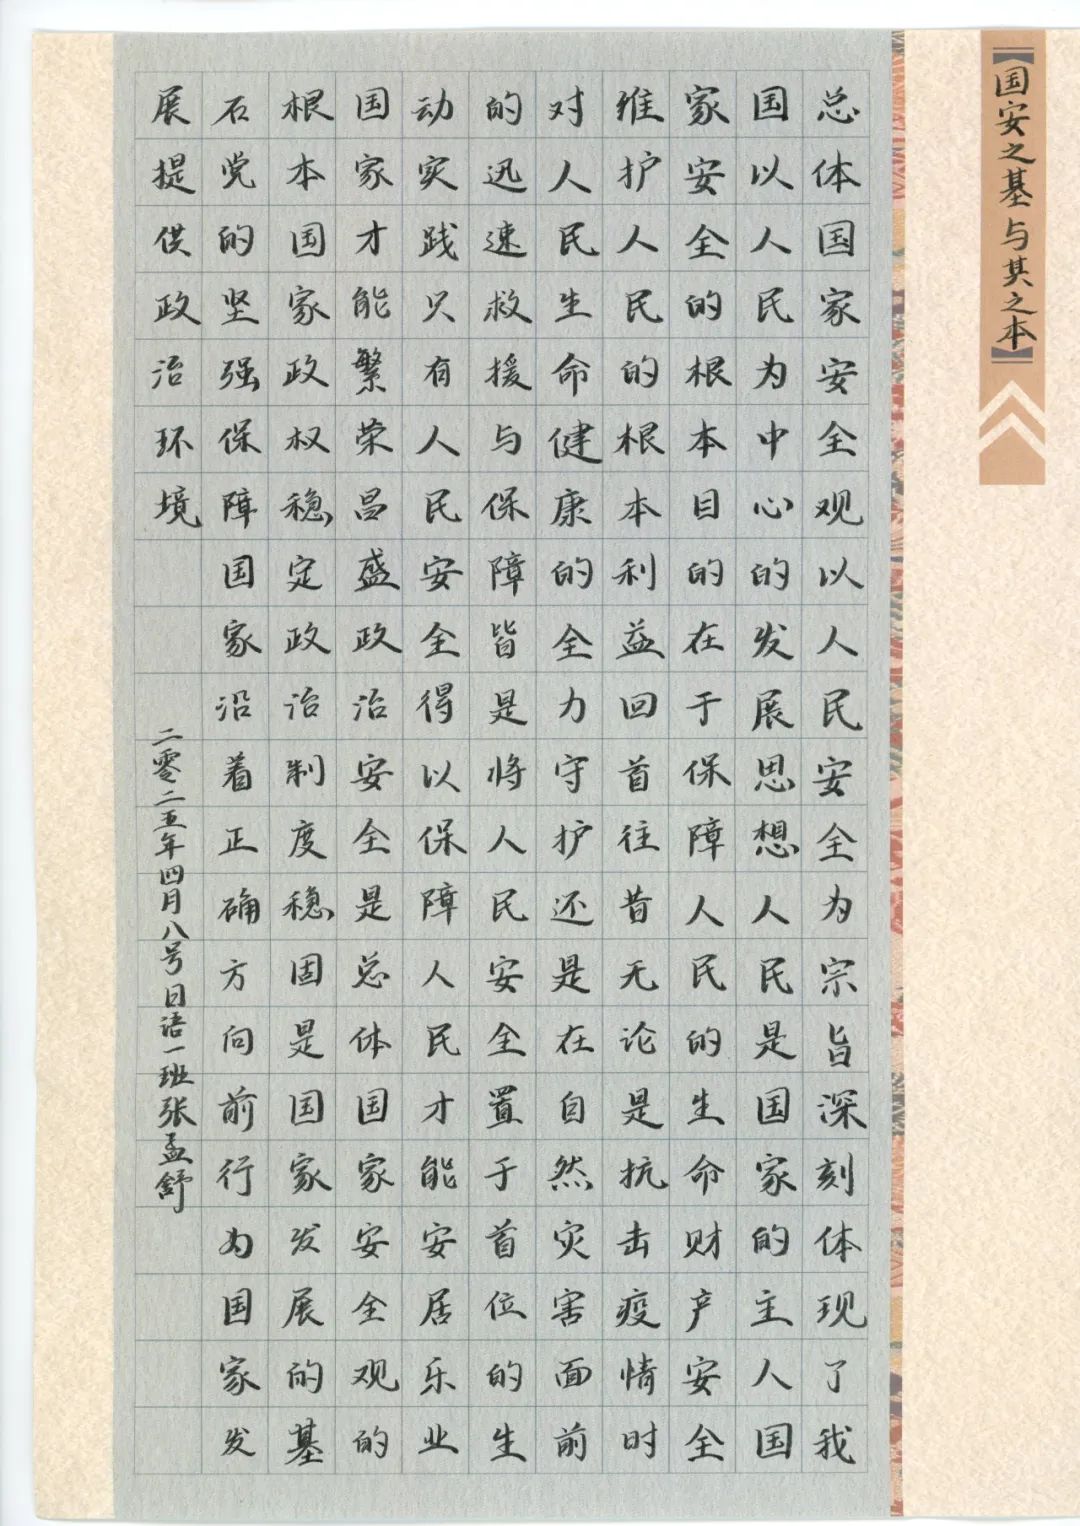 【国安之基与其之本】
总体国家安全观以人民安全为宗旨深刻体现了我
国以人民为中心的发展思想人民是国家的主人国
家安全的根本目的在于保障人民的生命财产安全
维护人民的根本利益回首往昔无论是抗击疫情时
对人民生命健康的全力守护还是在自然灾害面前
的迅速救援与保障皆是将人民安全置于首位的生
动实践只有人民安全得以保障人民才能安居乐业
国家才能繁荣昌盛政治安全是总体国家安全观的
根本国家政权稳定政治制度稳固是国家发展的基
石党的坚强保障国家沿着正确方向前行为国家发
展提供政治环境
二零二五年四月八号日语一班张孟舒